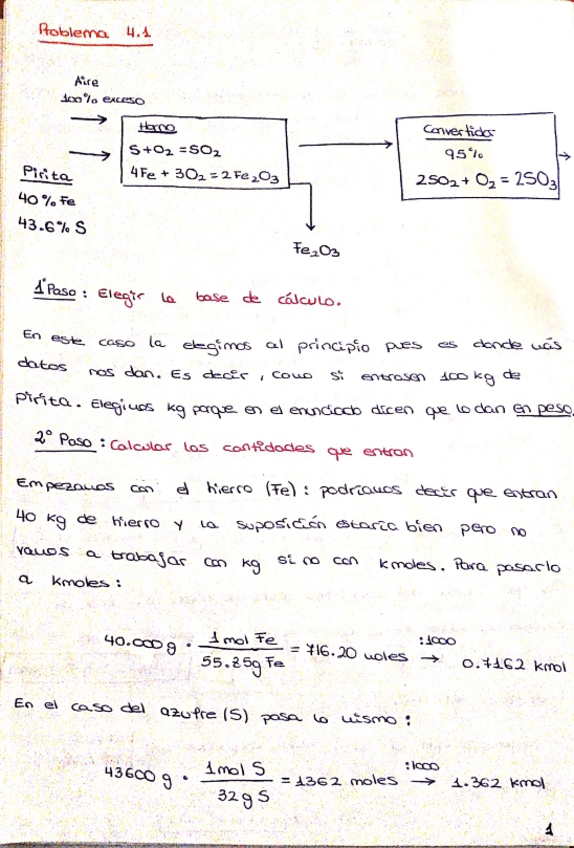 Problema 4.1
Aire
100% exceso
Horno
S + O₂ = SO₂
4Fe + 3O₂ = 2Fe₂O₃
Convertidor
95%
2SO₂ + O₂ = 2SO₃
Pirita
40% Fe
43.6% S
Fe₂O₃
1º Paso : Elegir la base de cálculo.
En este caso la elegimos al principio pues es donde más
datos nos dan. Es decir, como si entrasen 100 kg de
pirita. Elegimos kg porque en el enunciado dicen que lo dan en peso.
2º Paso : Calcular las cantidades que entran
Empezamos con el hierro (Fe) : podríamos decir que entran
40 kg de hierro y la suposición estaría bien pero no
vamos a trabajar con kg si no con kmoles. Para pasarlo
a kmoles :
40.000 g · 1 mol Fe / 55.85g Fe = 716.20 moles :1000 → 0.7162 kmol
En el caso del azufre (S) pasa lo mismo :
43600 g · 1 mol S / 32 g S = 1362 moles :1000 → 1.362 kmol
1